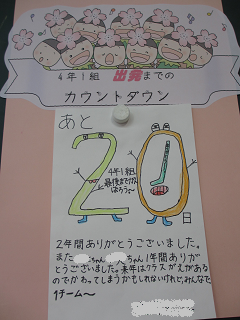 4年1組 出発までの
カウントダウン
あと
20
日
4年1組、
最後までがんばろう〜
2年間ありがとうございました。
また ちゃん ちゃん1年間ありが
とうございました。来年はクラスがえがある
のでかわってしまうかもしれないけれど、みんなで
1チーム〜